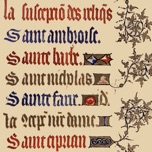 la susception des reliqs
Saint ambroise.
Sainte barbe.
Saint nicholas
Sainte fare. d.
la concepcion nre dame.
Saint ciprian